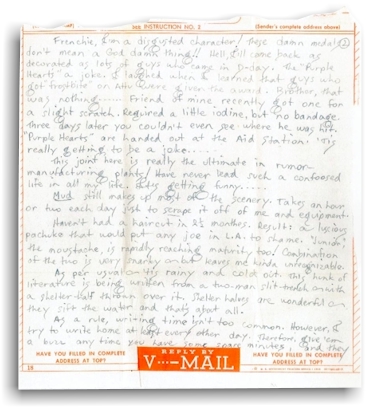 SEE INSTRUCTION NO. 2
(Sender's complete address above)
Frenchie, I'm a disgusted character! These damn medals (2)
don't mean a God damn thing!! Hell, I'll come back as
decorated as lots of guys who came in D-day. The "Purple
Heart" a joke. I laughed when I learned that guys who
got frostbite on Attu were given the award. Brother, that
was nothing..... Friend of mine recently got one for
a slight scratch. Required a little iodine, but no bandage.
Three days later you couldn't even see where he was hit.
"Purple Hearts" are handed out at the Aid Station. 'Tis
really getting to be a joke.....
This joint here is really the ultimate in rumor
manufacturing plants! Have never lead such a confused
life in all my life. It is getting funny.....
Mud still makes up most of the scenery. Takes an hour
or two each day just to scrape it off of me and equipment.
Haven't had a haircut in 2½ months. Result: a luscious
pachuke that would put any joe in L.A. to shame. "Junior",
the moustache, is rapidly reaching maturity too. Combination
of the two is very snarky but leaves me kinda unrecognizable.
As per usual 'tis rainy and cold out. This hunk of
literature is being written from a two-man slit-trench with
a shelter-half thrown over it. Shelter halves are wonderful
they sift the water and that's about all.
As a rule, writing time isn't too common. However, I
try to write home at least every other day. Therefore, give 'em
a buzz any time you have some spare minutes, and they
HAVE YOU FILLED IN COMPLETE
ADDRESS AT TOP?
REPLY BY
V···–MAIL
HAVE YOU FILLED IN COMPLETE
ADDRESS AT TOP?